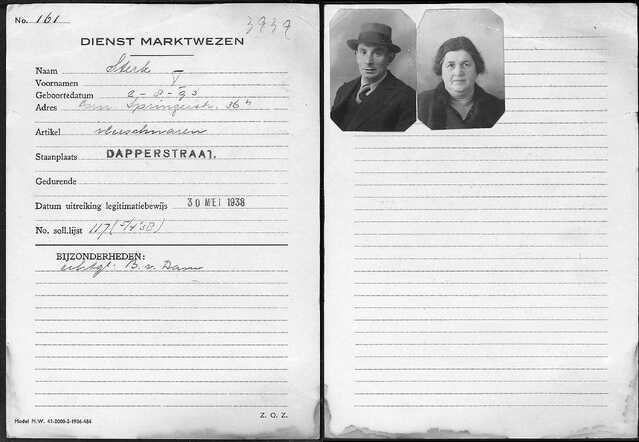 No. 161
3939
DIENST MARKTWEZEN
Naam Sterk
Voornamen
Geboortedatum 2-8-93
Adres Springerstr. 36
Artikel vleeschwaren
Staanplaats DAPPERSTRAAT.
Gedurende
Datum uitreiking legitimatiebewijs 30 MEI 1938
No. soll.lijst 117 ('38)
BIJZONDERHEDEN:
echtgt: B. v. Dam
Z. O. Z.
Model M.W. 41-2000-3-1936-484